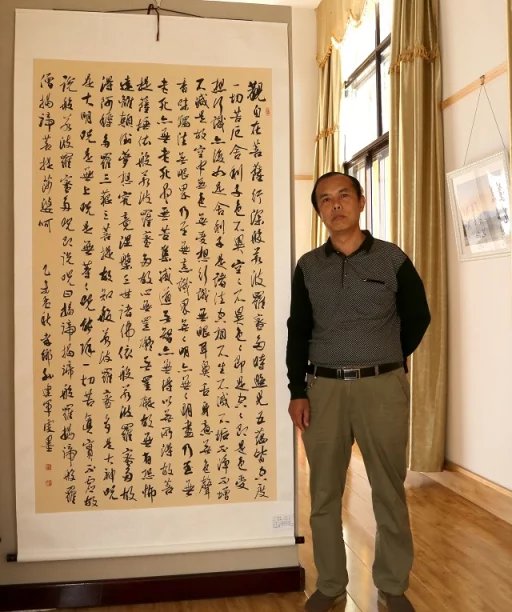 觀自在菩薩行深般若波羅蜜多時照見五蘊皆空度
一切苦厄舍利子色不異空空不異色色即是空空即是色受
想行識亦復如是舍利子是諸法空相不生不滅不垢不淨不增
不減是故空中無色無受想行識無眼耳鼻舌身意無色聲
香味觸法無眼界乃至無意識界無無明亦無無明盡乃至無
老死亦無老死盡無苦集滅道無智亦無得以無所得故菩
提薩埵依般若波羅蜜多故心無罣礙無罣礙故無有恐怖
遠離顛倒夢想究竟涅槃三世諸佛依般若波羅蜜多故
得阿耨多羅三藐三菩提故知般若波羅蜜多是大神咒
是大明咒是無上咒是無等等咒能除一切苦真實不虛故
說般若波羅蜜多咒即說咒曰揭諦揭諦般羅揭諦般羅
僧揭諦菩提莎婆訶 乙未 秋 建軍虔墨